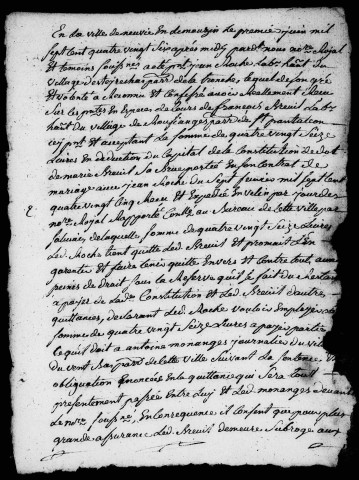 En la ville de neuvic en demouzin ce premier juin mil
sept cent quatre vingt six après midy pard. nous no.re Royal
et temoins sousg.nes a été p.nt jean Roche lab.r hab.t du
village parr.
et volonté a Reconnu et Confessé avoir Reellement Reçu
sur ces p.ntes en Especes de cours de françois Breuil lab.r
hab.t du village de parr. de S.t pantaleon
icy p.nt et acceptant la somme de quatre vingt seize
Livres En deduction du Capital de la Constitution de dot
de marie Breuil sa portée En son Contrat de
mariage avec jean Roche du sept fevrier mil sept cent
quatre vingt cinq Reçu et Expedié En velin par
no.re Royal Rapporté Contrôlé au Bureau de cette ville par
de laquelle somme de quatre vingt seize Livres
Led. Roche tient quitte led. Breuil et promet l'En
garantir et faire tenir quitte Envers et Contre tous, aux
peines de Droit sous la Reserve qu'il se fait du Restant
a payer de lad. Constitution et led. Breuil d'autres
quittances, declarant led. Roche vouloir Employer lad.
somme de quatre vingt seize Livres a payer partie de
ce qu'il doit a antoine monanges journalier du village
du parr. de cette ville suivant la sentence et
obligation Enoncées En la quittance qui sera tout
presentement passée Entre luy et led. monanges devant
Le no.re sousg.né, En consequence il consent que pour plus
grande assurance led. Breuil demeure subrogé aux